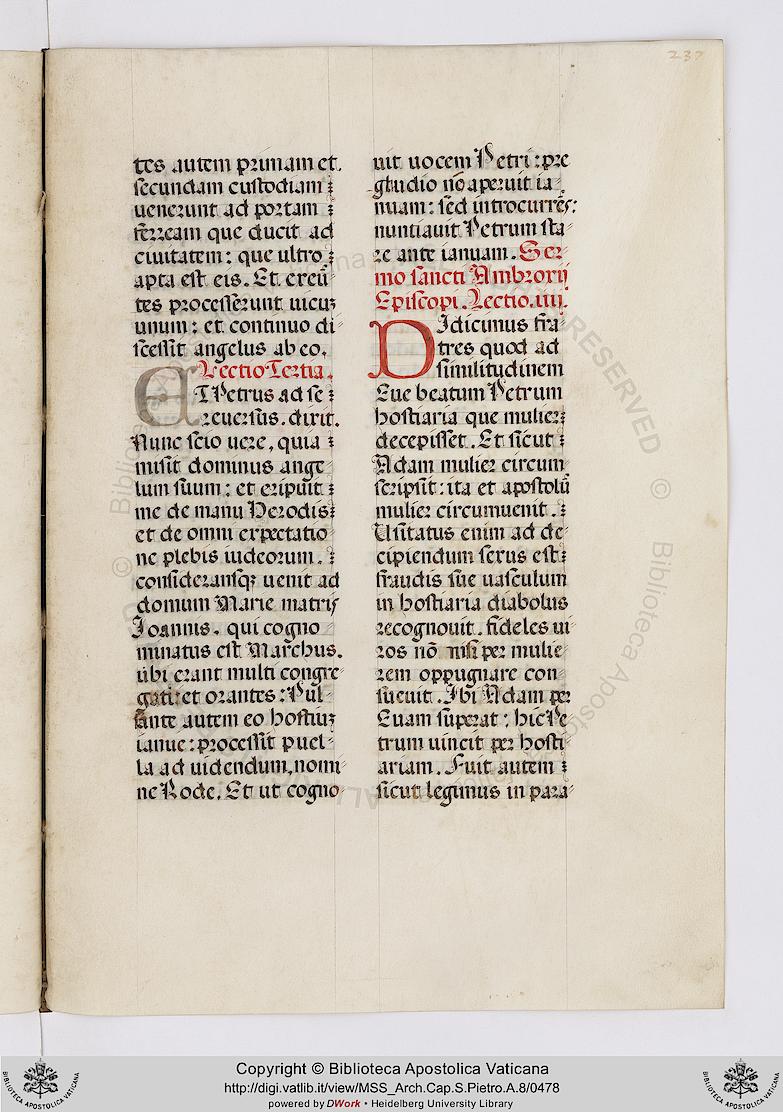 237
tes autem primam et.
secundam custodiam
uenerunt ad portam
ferream que ducit ad
ciuitatem: que ultro
apta est eis. Et exeū
tes processerunt uicuʒ
unum: et continuo di
scessit angelus ab eo.
Lectio Tertia.
ET Petrus ad se
reuersus. dixit.
Nunc scio uere, quia
misit dominus ange
lum suum: et eripuit
me de manu Herodis
et de omni expectatio
ne plebis iudeorum.
consideransqʒ uenit ad
domum Marie matris
Joannis. qui cogno
minatus est Marchus.
ubi erant multi congre
gati: et orantes: Pul
sante autem eo hostiuʒ
ianue: processit puel
la ad uidendum, nomi
ne Rode. Et ut cogno
uit uocem Petri: pre
gaudio nō aperuit ia
nuam: sed introcurrēs:
nuntiauit Petrum sta
re ante ianuam. Ser
mo sancti Ambrorij
Episcopi. Lectio. iiij.
DIdicimus fra
tres quod ad
similitudinem
Eue beatum Petrum
hostiaria que mulier
decepisset. Et sicut
Adam mulier circum
scripsit: ita et apostolū
mulier circumuenit.
Usitatus enim ad de
cipiendum sexus est
fraudis sue uasculum
in hostiaria diabolus
recognouit. fideles ui
ros nō nisi per mulie
rem oppugnare con
sueuit. Ibi Adam per
Euam superat: hic Pe
trum uincit per hosti
ariam. Fuit autem
sicut legimus in para
Copyright © Biblioteca Apostolica Vaticana
http://digi.vatlib.it/view/MSS_Arch.Cap.S.Pietro.A.8/0478
powered by DWork • Heidelberg University Library
BIBLIOTECA APOSTOLICA VATICANA
BIBLIOTECA APOSTOLICA VATICANA